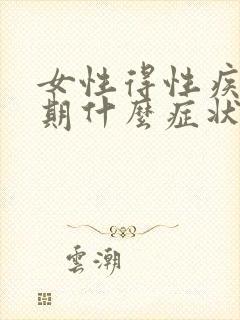 女性得性疾
期什麼症狀
雲潮